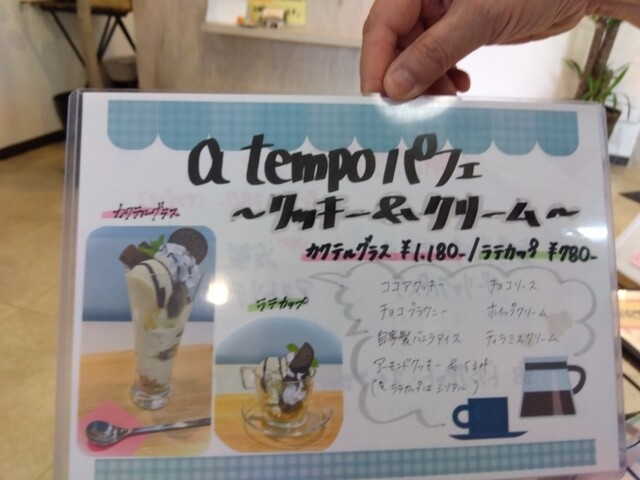 a tempo パフェ
〜クッキー&クリーム〜
カクテルグラス ¥1,180-/ラテカップ ¥780-
カクテルグラス
ラテカップ
ココアクッキー チョコソース
チョコブラウニー ホイップクリーム
自家製バニラアイス ティラミスクリーム
アーモンドクッキー & くるみ
ラテカップは シリアル)